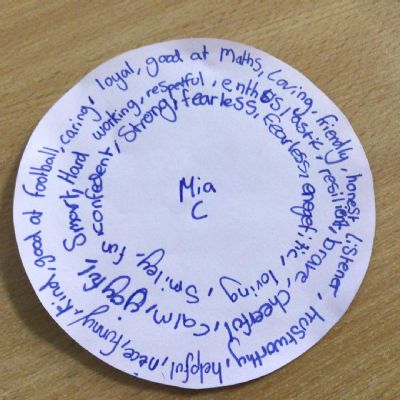 good at football, caring, loyal, good at maths, Loving, friendly, honest, listener, trustworthy, helpful, neice, funny, kind,
Smart, Hard working, respetful, resilient, brave, cheerful, calm,
confedent, Strong, fearless, fearless, loving, Smiley, fun
Mia
C